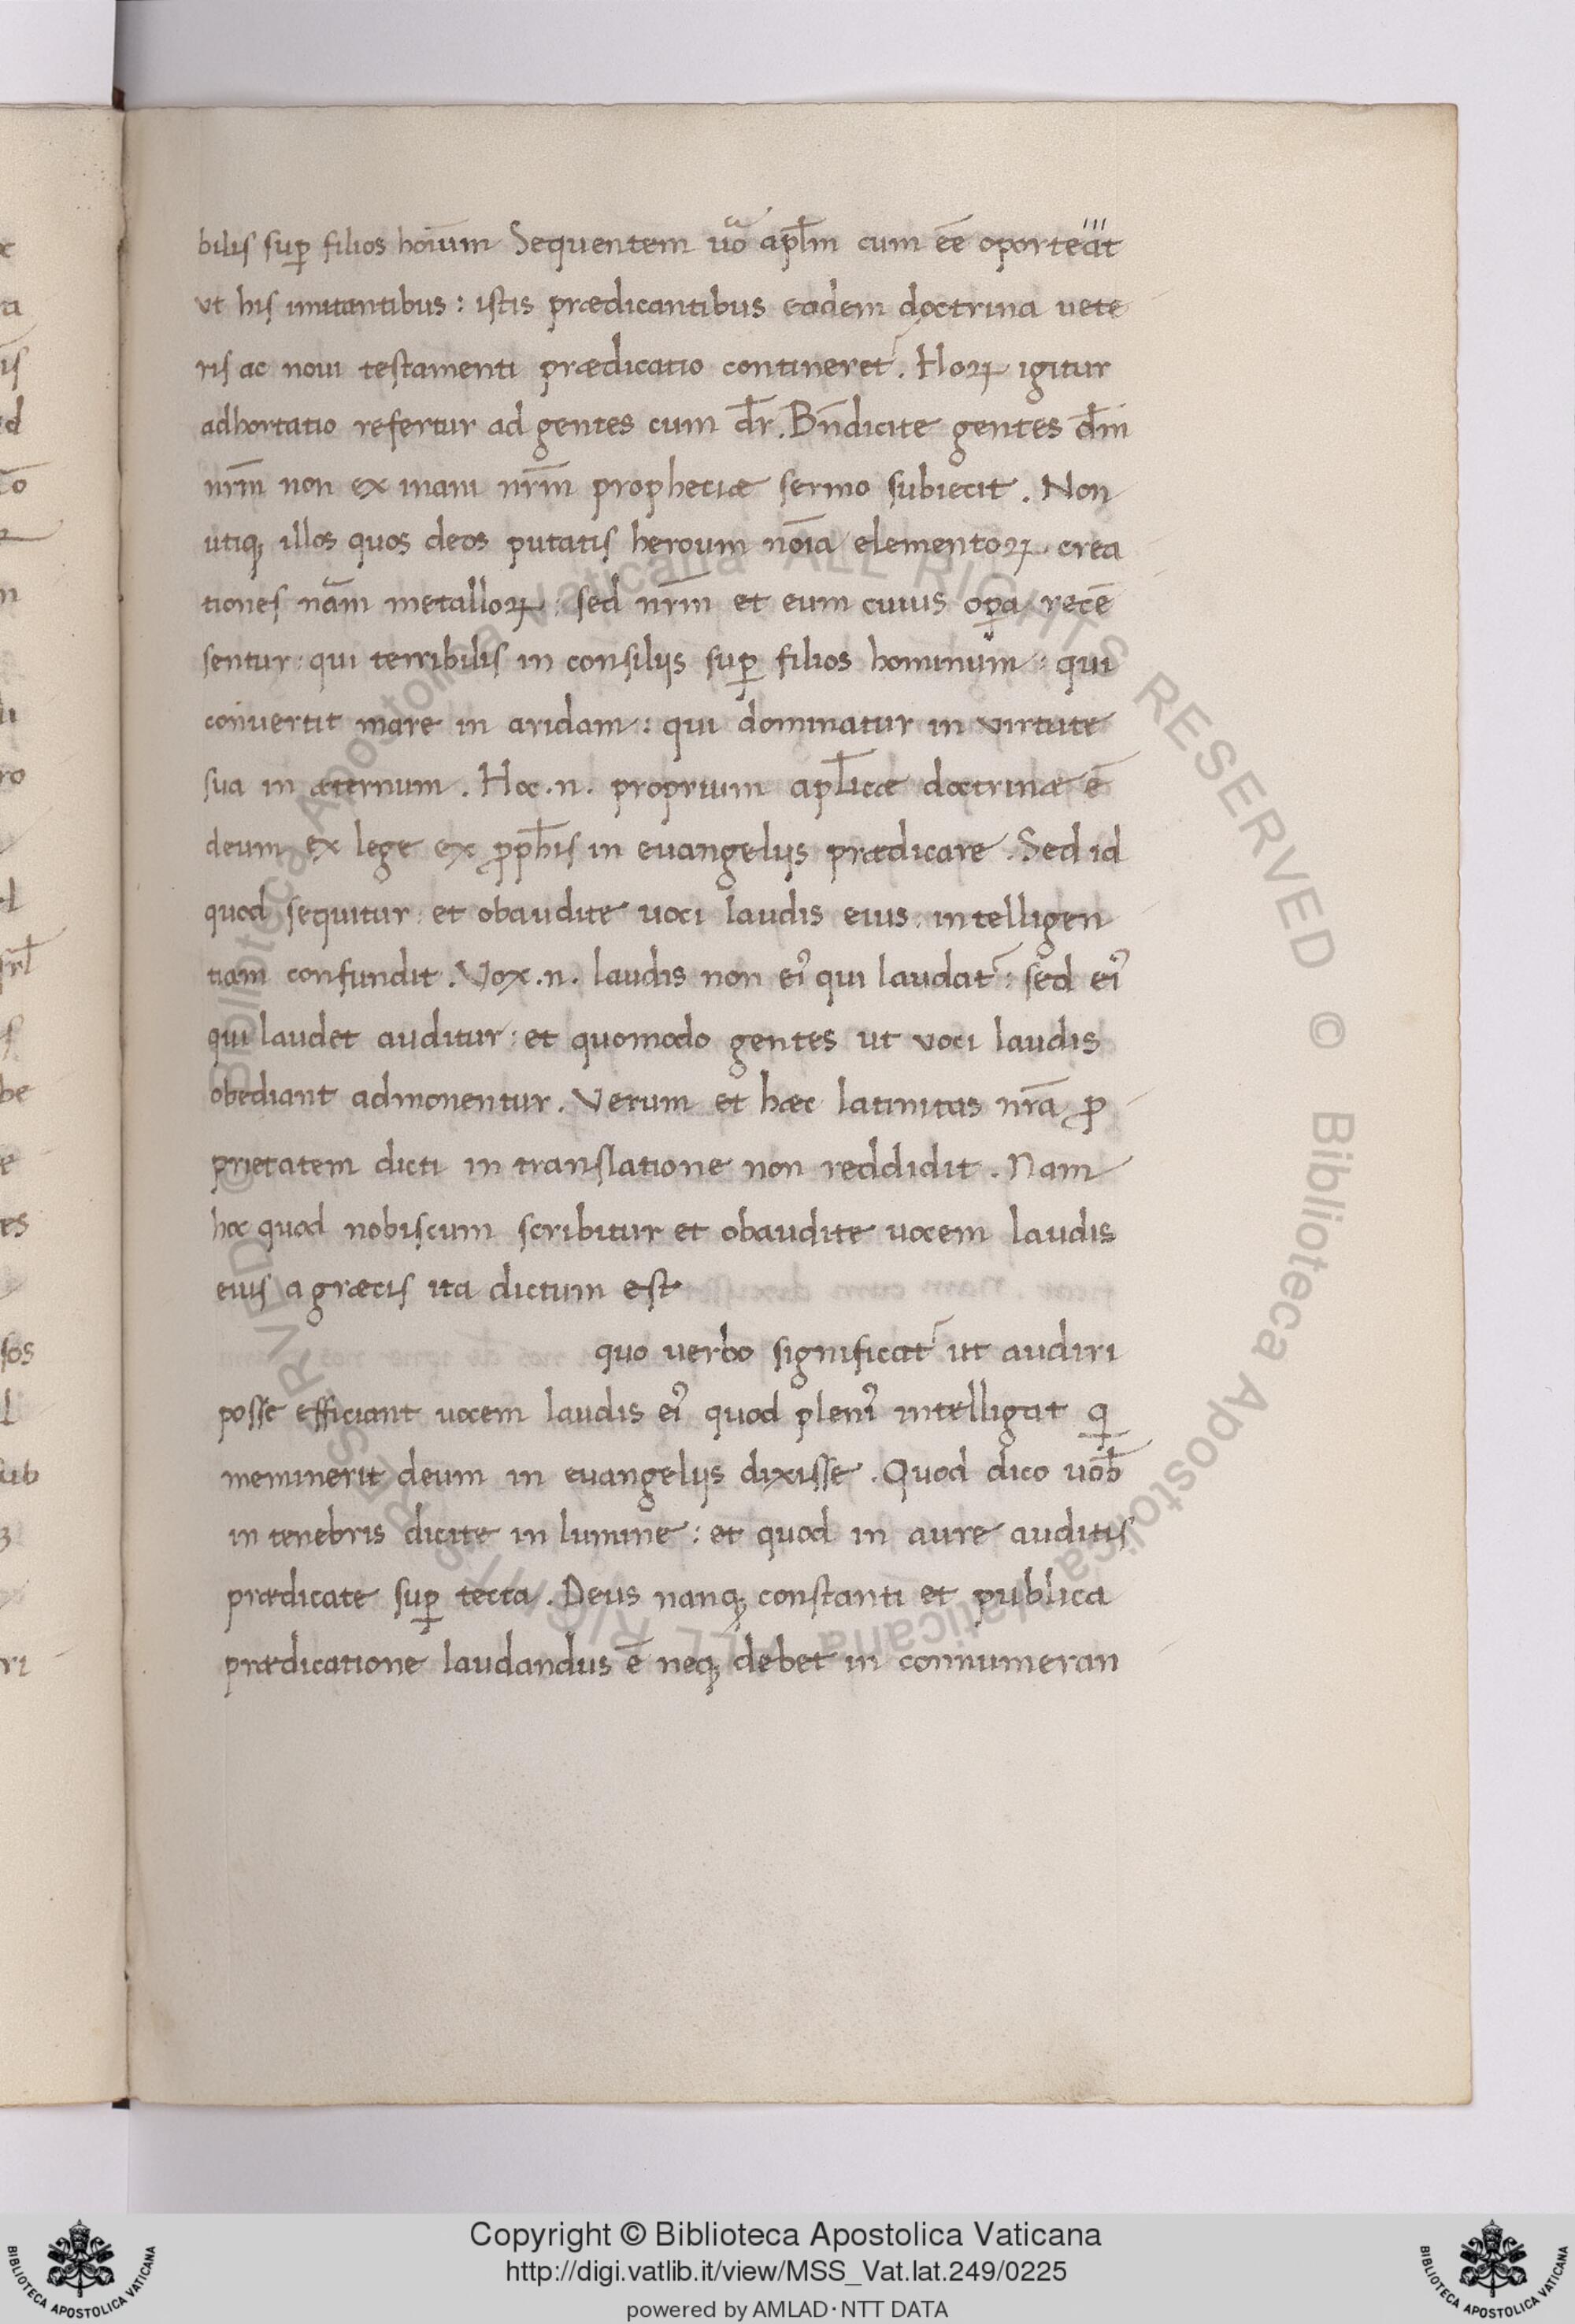 bilis sup̱ filios hoīum Sequentem uoᷓ apl̄m cum ēe oporteat
vt his imitantibus : istis prædicantibus eadem doctrina uete
ris ac noui testamenti prædicatio contineret᷑ . Hoꝝ igitur
adhortatio refertur ad gentes cum dr̄ . Bn̄dicite gentes dm̄
nr̄m non ex inani nr̄m propheciæ sermo subiecit . Non
utiqꝫ illos quos deos putatis heroum noīa elementoꝝ crea
tiones nām metalloꝝ : sed nr̄m et eum cuius oꝑa recē
sentur : qui terribilis in consilijs suꝑ filios hominum : qui
conuertit mare in aridam : qui dominatur in virtute
sua in æternum . Hoc .n. proprium apl̄icæ doctrinæ ē
deum ex lege ex ꝓph̄is in euangelijs prædicare . Sed id
quod sequitur : et obaudite uoci laudis eius : intelligen
tiam confundit . Vox .n. laudis non eiꝰ qui laudat᷑ : sed eiꝰ
qui laudet auditur : et quomodo gentes ut voci laudis
obediant admonentur . Verum et hæc latinitas nr̄a ꝓ
prietatem dicti in translatione non reddidit . Nam
hoc quod nobiscum scribitur et obaudite uocem laudis
eius a græcis ita dictum est
quo verbo significat᷑ ut audiri
posse efficiant uocem laudis eiꝰ quod pleniꝰ intelligat q
meminerit deum in euangelijs dixisse . Quod dico uob̄
in tenebris dicite in lumine : et quod in aure auditis
prædicate suꝑ tecta . Deus nanqꝫ constanti et publica
prædicatione laudandus ē neqꝫ debet in connumeran
© Biblioteca Apostolica Vaticana ALL RIGHTS RESERVED © Biblioteca Apostolica Vaticana ALL RIGHTS RESERVED
BIBLIOTECA APOSTOLICA VATICANA
Copyright © Biblioteca Apostolica Vaticana
http://digi.vatlib.it/view/MSS_Vat.lat.249/0225
powered by AMLAD·NTT DATA
BIBLIOTECA APOSTOLICA VATICANA